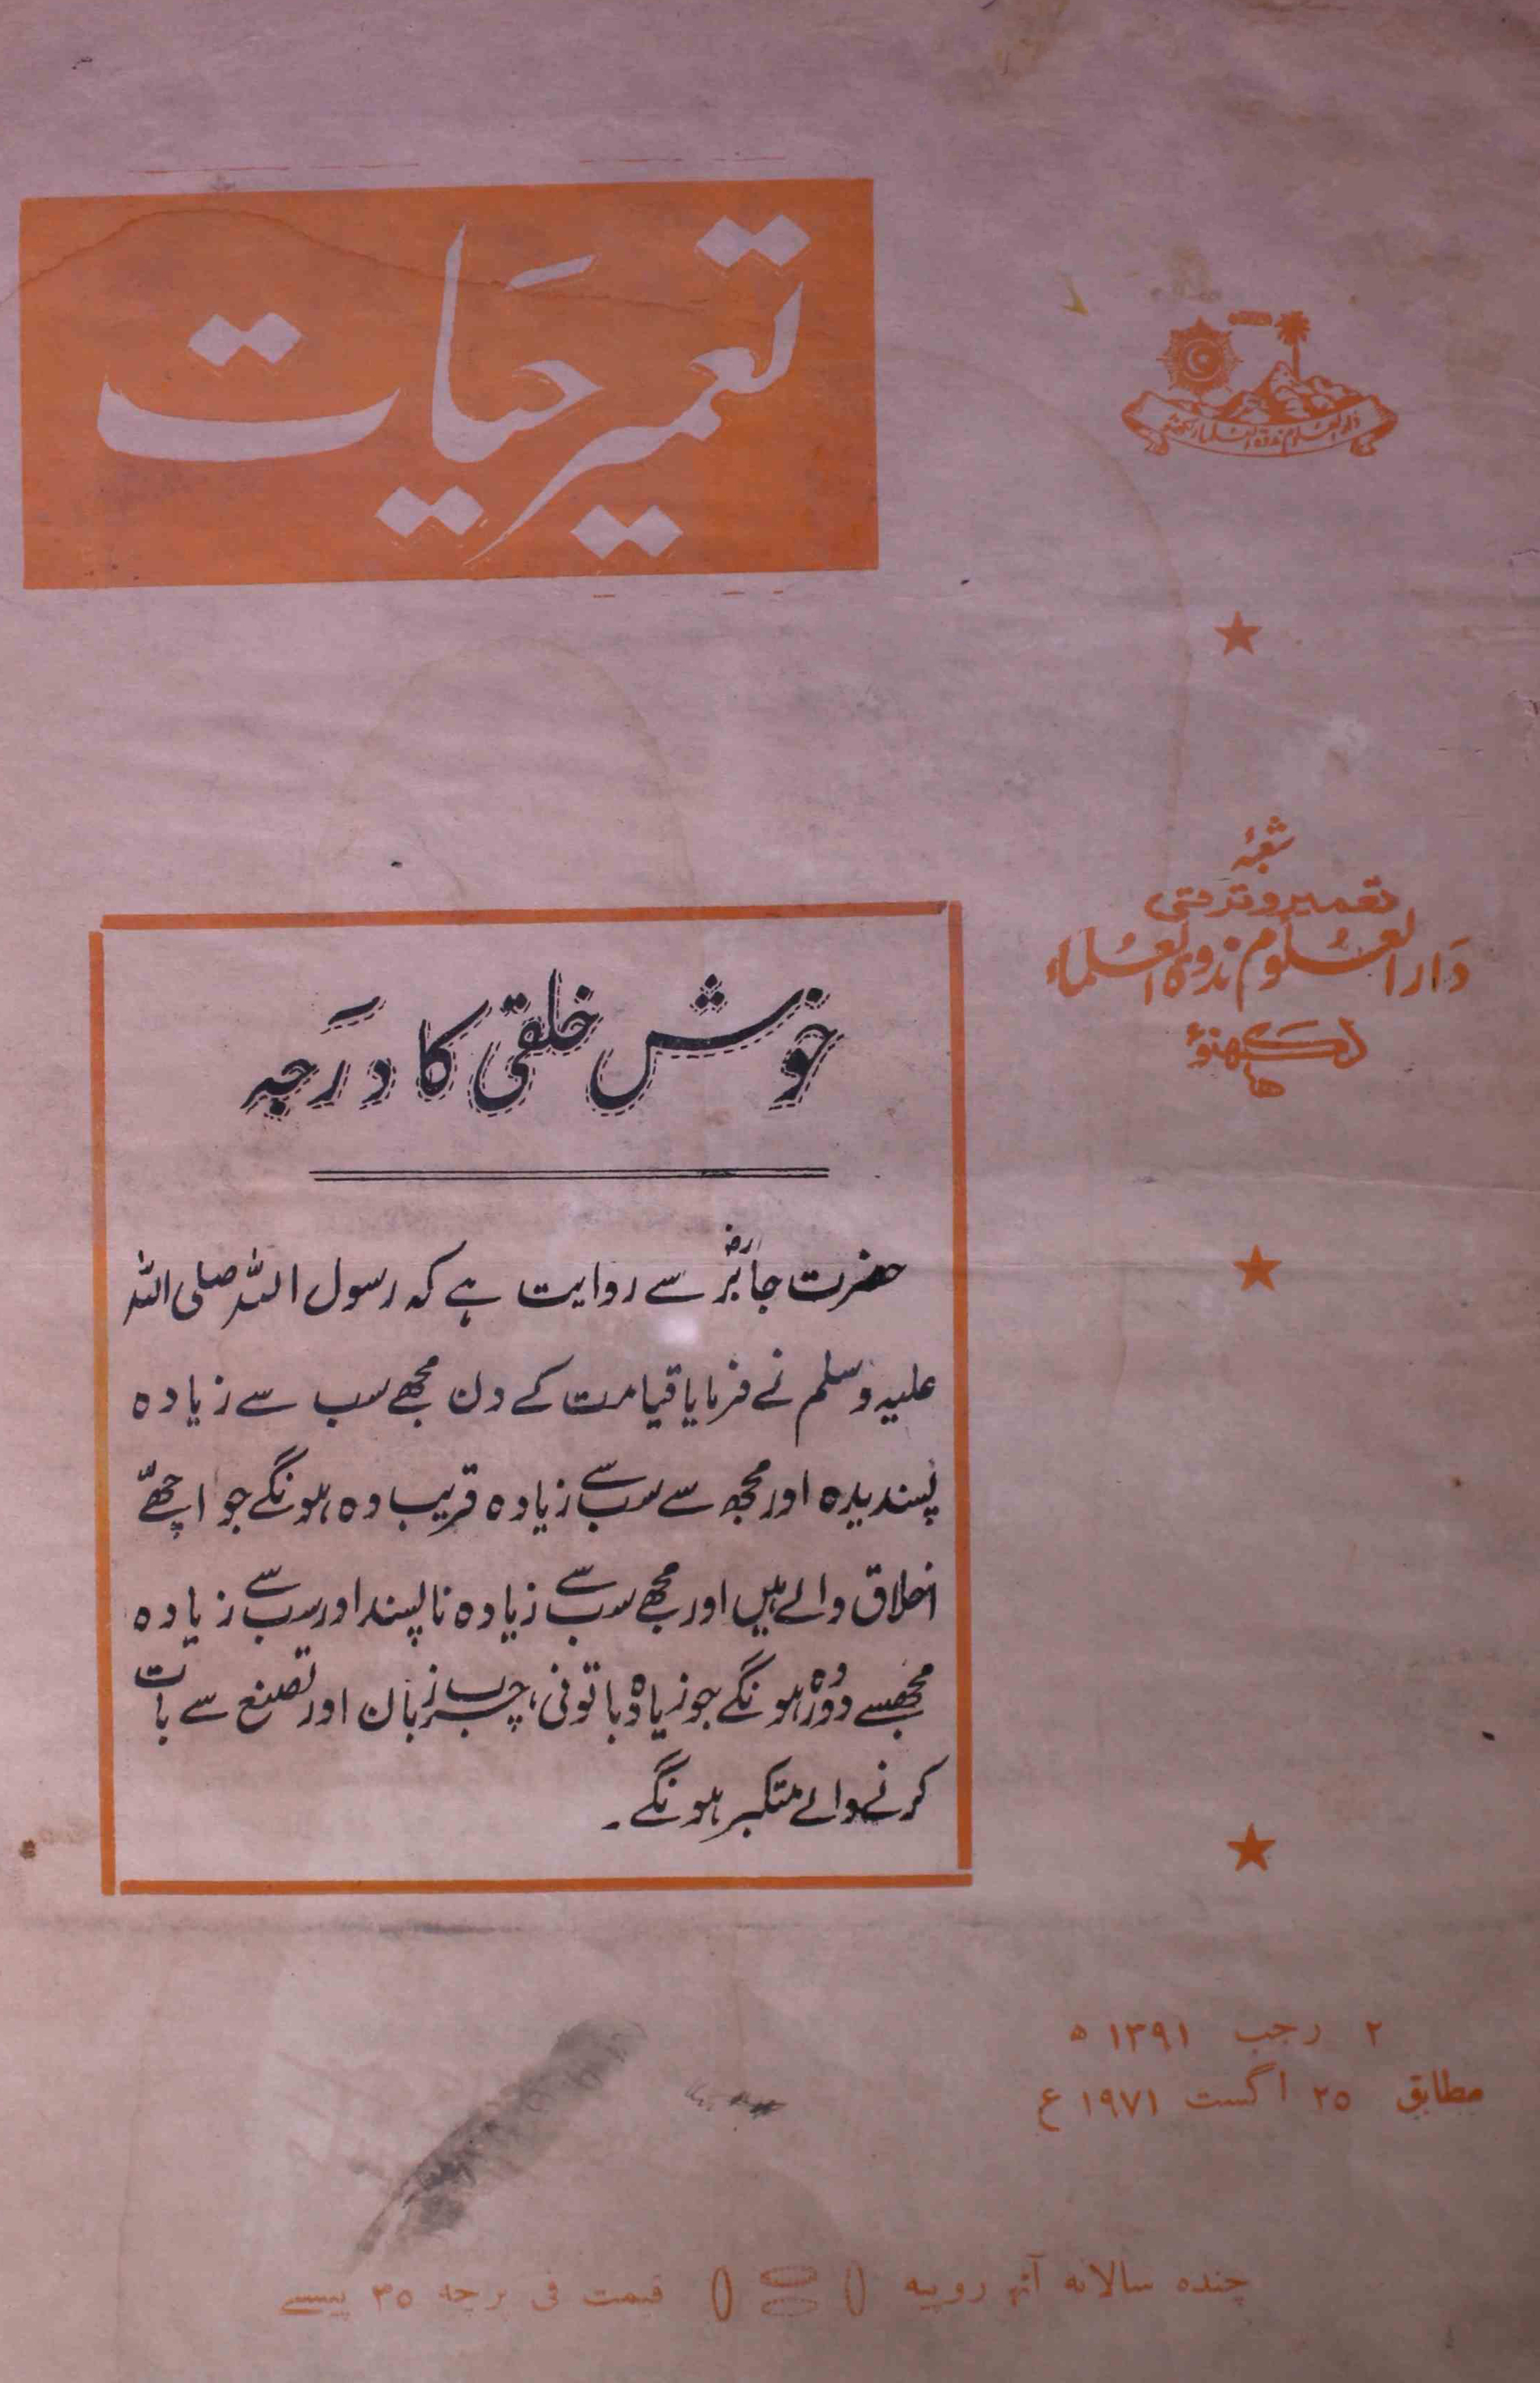 تعمیر حیات
دار العلوم ندوۃ العلماء لکھنؤ
شعبۂ
تعمیر و ترقی
دَار العُلوم ندوۃ العُلماء
لکھنؤ
خوش خلقی کا درَجہ
حضرت جابرؓ سے روایت ہے کہ رسول اللہ صلی اللہ
علیہ وسلم نے فرمایا قیامت کے دن مجھے سب سے زیادہ
پسندیدہ اور مجھ سے سب سے زیادہ قریب وہ ہونگے جو اچھّے
اخلاق والے ہیں اور مجھے سب سے زیادہ ناپسند اور سب سے زیادہ
مجھسے دُور وہ ہونگے جو زیادہ باتونی، چرب زبان اور تصنع سے بات
کرنے والے متکبر ہونگے۔
۲ رجب ۱۳۹۱ ہ
مطابق ۲۵ اگست ۱۹۷۱ ع
چندہ سالانہ آٹھ روپیہ قیمت فی پرچہ ۳۵ پیسے